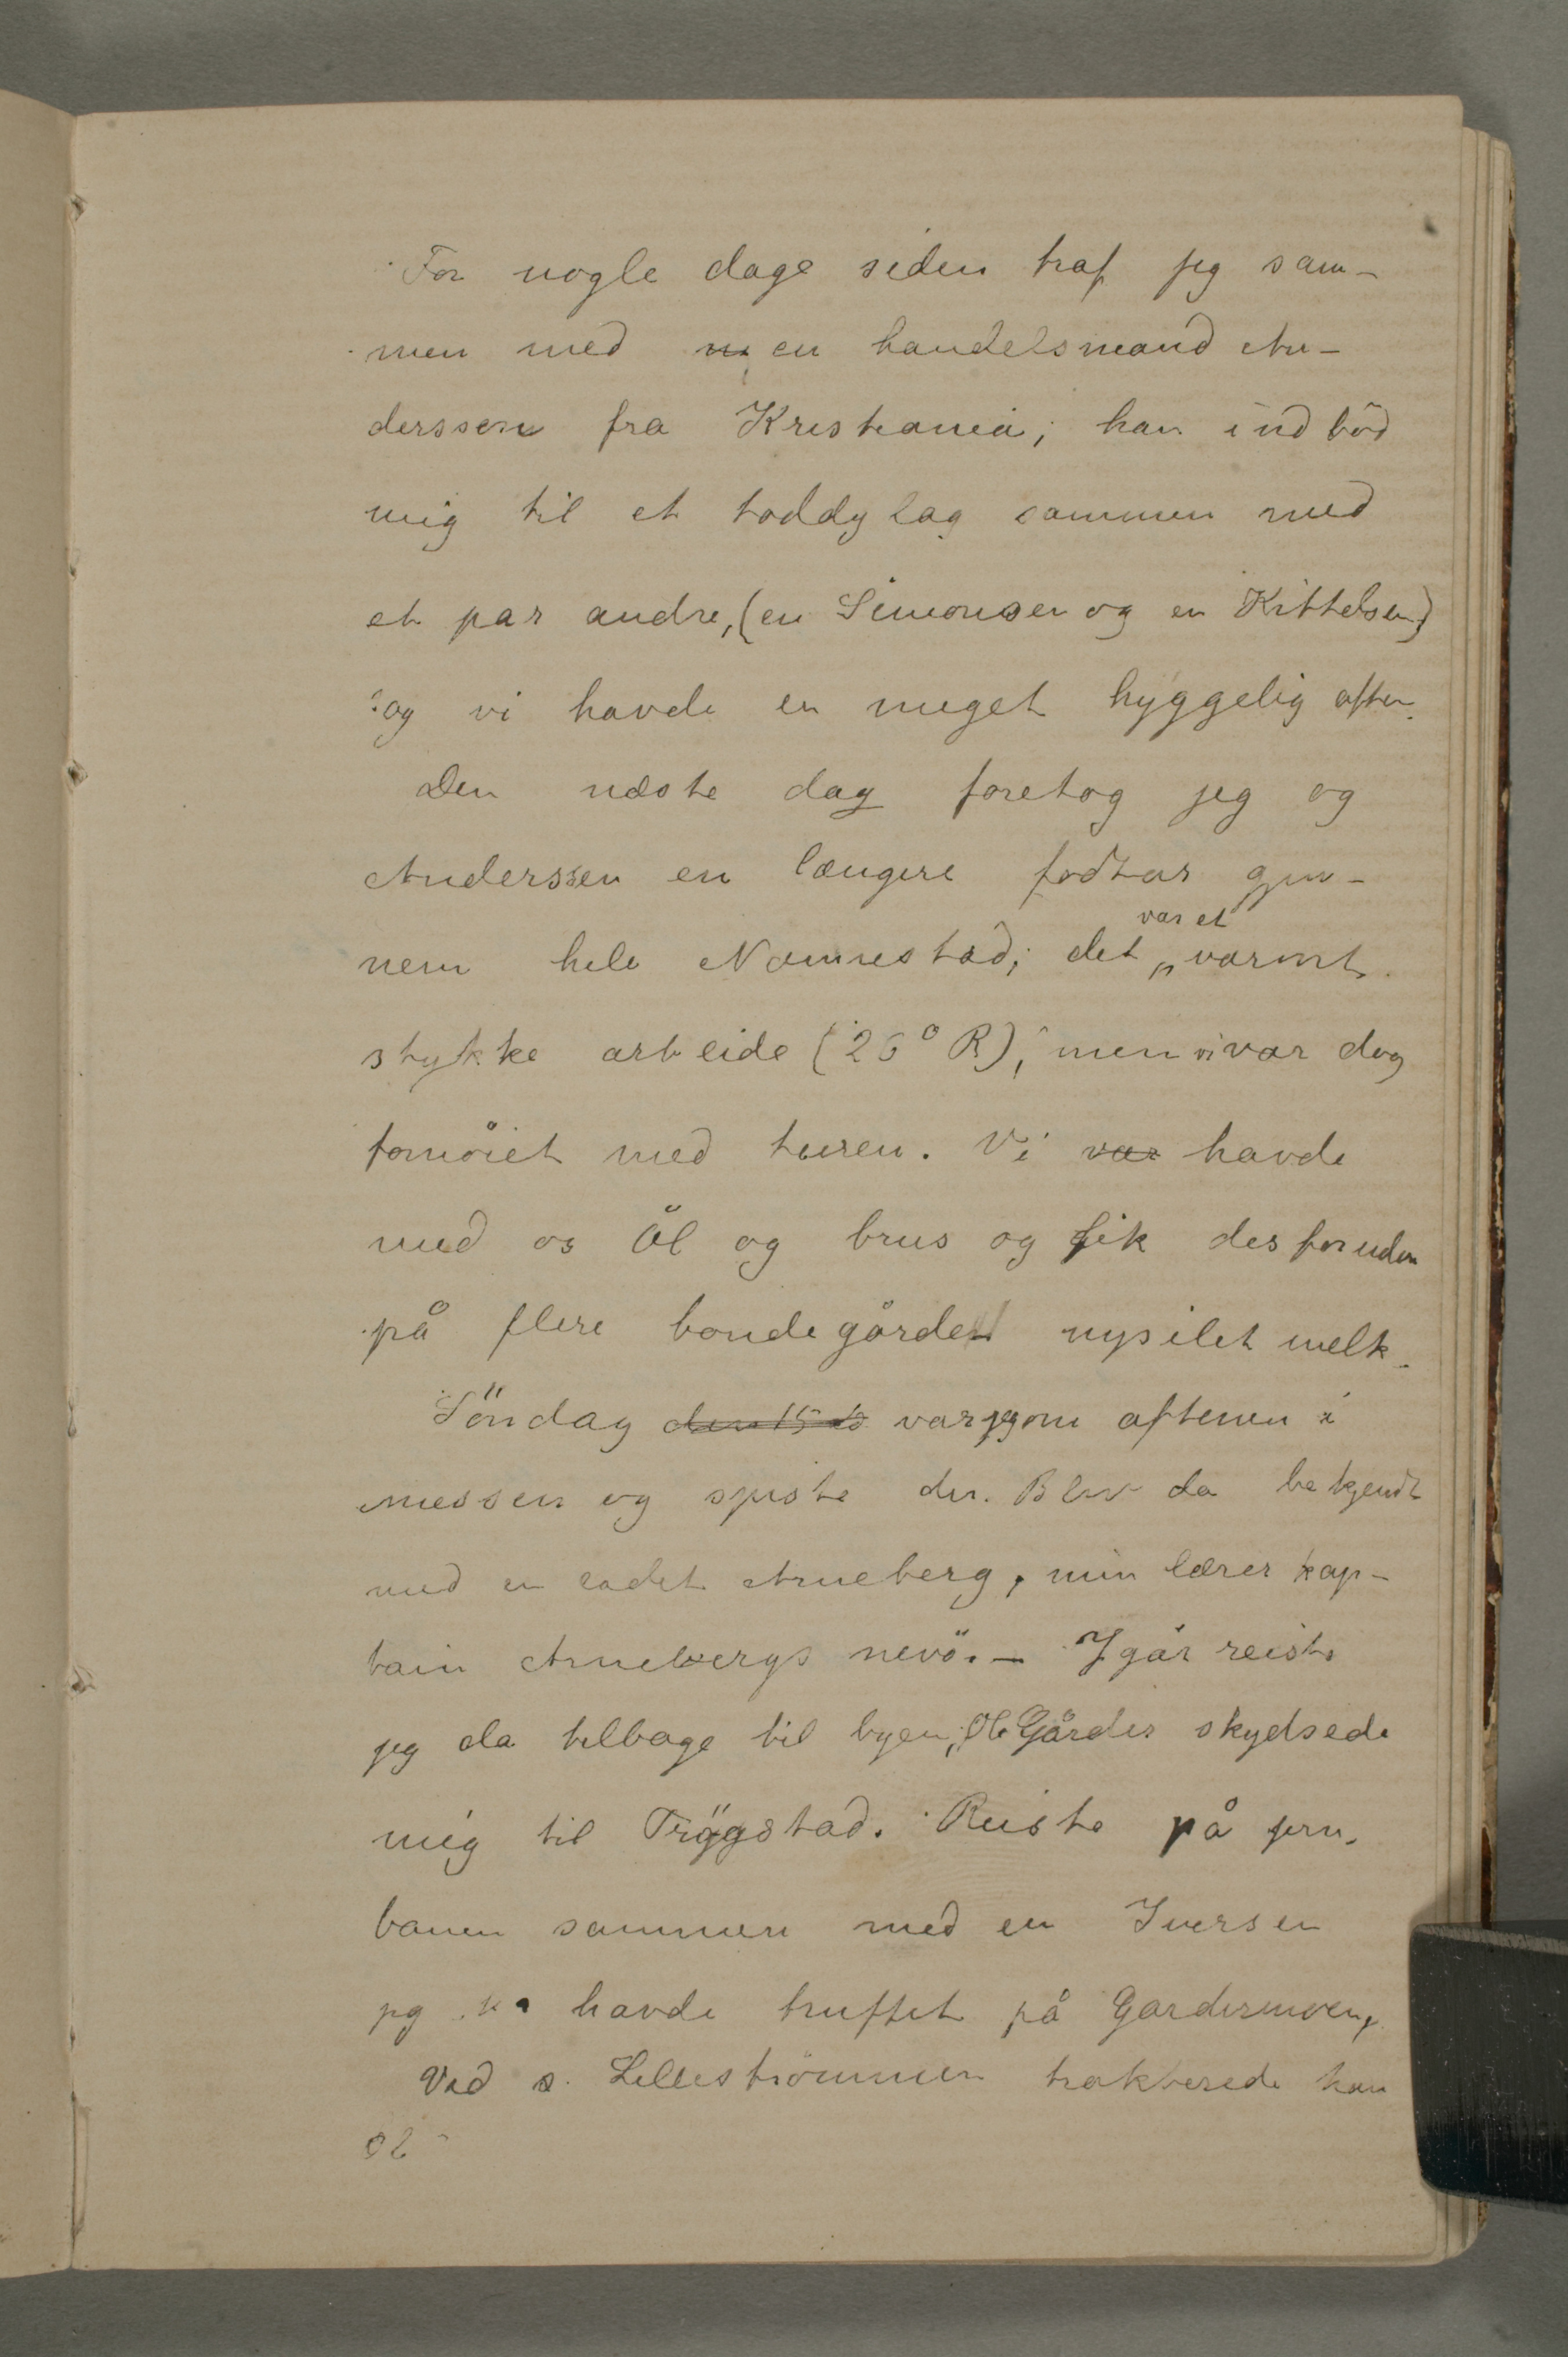 For nogle dage siden traf jeg sam-
men med en handelsmand An-
derssen fra Kristiania; han indbød
mig til et toddylag sammen med
et par andre, (en Simonsen og en Kittelsen)
og vi havde en meget hyggelig aften.
Den næste dag foretog jeg og
Anderssen en længere fodtur gjen-
var et
nem hele Nannestad; det varmt
stykke arbeide (26° R), men vi var dog
fornöiet med turen. Vi var havde
med os Öl og brus og fik desforuden
på flere bondegårde nysilet melk.
Söndag den 15de var jeg om aftenen i
messen og spiste der. Blev da bekjendt
med en kadet Arneberg, min lærer kap-
tain Arnebergs nevö. — Igår reiste
jeg da tilbage til byen; Ole Gårder skydsede
mig til Trögstad. Reiste på jern-
banen sammen med en Iversen
jeg havde truffet på Gardermoen,
Ved Lilleströmmen trakterede han
öl